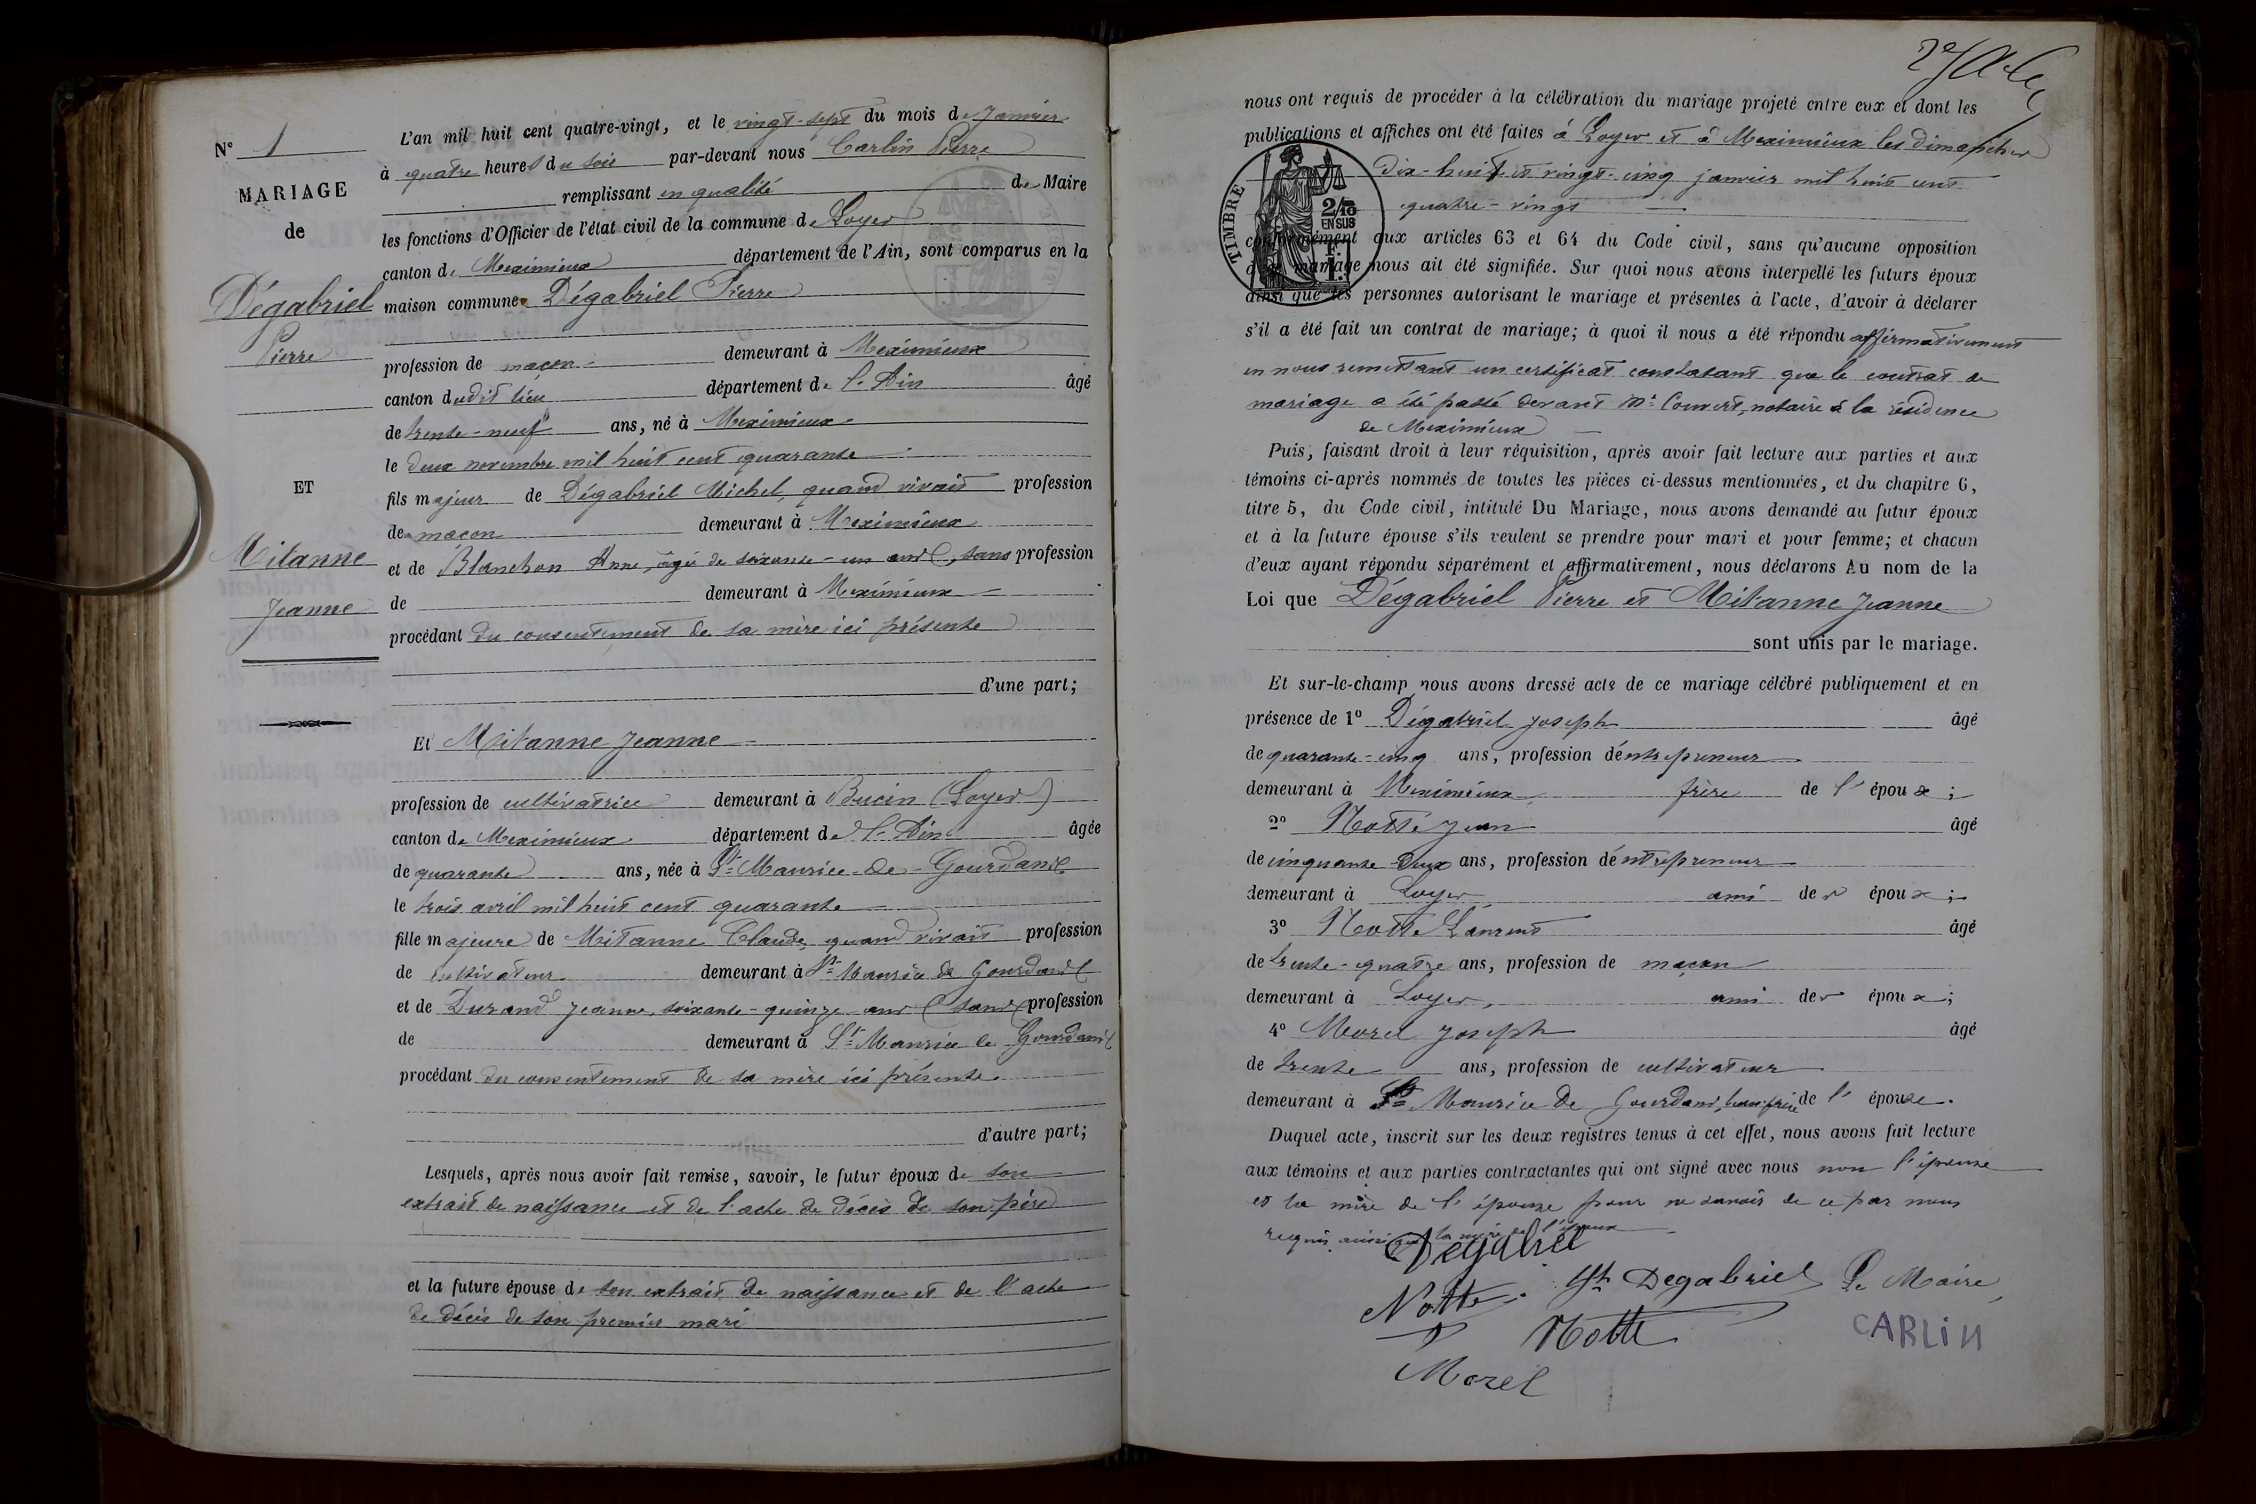 N° 1
MARIAGE
de
Dégabriel
Pierre
ET
Mitanne
Jeanne
L'an mil huit cent quatre-vingt, et le vingt-sept du mois de Janvier
à quatre heures du soir par-devant nous Carlin Pierre
remplissant en qualité de Maire
les fonctions d'Officier de l'état civil de la commune de Loyes
canton de Meximieux département de l'Ain, sont comparus en la
maison commune Dégabriel Pierre
profession de maçon demeurant à Meximieux
canton dudit lieu département de l'Ain âgé
de trente-neuf ans, né à Meximieux
le deux novembre mil huit cent quarante
fils majeur de Dégabriel Michel, quand vivait profession
de maçon demeurant à Meximieux
et de Blanchon Anne, âgée de soixante-un ans, sans profession
de demeurant à Meximieux
procédant du consentement de sa mère ici présente
d'une part;
Et Mitanne Jeanne
profession de cultivatrice demeurant à Bucin (Loyes)
canton de Meximieux département de l'Ain âgée
de quarante ans, née à St Maurice-de-Gourdans
le trois avril mil huit cent quarante
fille majeure de Mitanne Claude, quand vivait profession
de cultivateur demeurant à St Maurice de Gourdans
et de Durand Jeanne, soixante-quinze ans sans profession
de demeurant à St Maurice de Gourdans
procédant du consentement de sa mère ici présente
d'autre part;
Lesquels, après nous avoir fait remise, savoir, le futur époux de son
extrait de naissance et de l'acte de décès de son père
et la future épouse de son extrait de naissance et de l'acte
de décès de son premier mari
nous ont requis de procéder à la célébration du mariage projeté entre eux et dont les
publications et affiches ont été faites à Loyes et à Meximieux les dimanches
dix-huit et vingt-cinq janvier mil huit cent
quatre-vingt
TIMBRE
2/10
EN SUS
conformément aux articles 63 et 64 du Code civil, sans qu'aucune opposition
au mariage nous ait été signifiée. Sur quoi nous avons interpellé les futurs époux
ainsi que les personnes autorisant le mariage et présentes à l'acte, d'avoir à déclarer
s'il a été fait un contrat de mariage; à quoi il nous a été répondu affirmativement
en nous remettant un certificat constatant que le contrat de
mariage a été passé devant Me Convert, notaire à la résidence
de Meximieux
Puis, faisant droit à leur réquisition, après avoir fait lecture aux parties et aux
témoins ci-après nommés de toutes les pièces ci-dessus mentionnées, et du chapitre 6,
titre 5, du Code civil, intitulé Du Mariage, nous avons demandé au futur époux
et à la future épouse s'ils veulent se prendre pour mari et pour femme; et chacun
d'eux ayant répondu séparément et affirmativement, nous déclarons Au nom de la
Loi que Dégabriel Pierre et Mitanne Jeanne
sont unis par le mariage.
Et sur-le-champ nous avons dressé acte de ce mariage célébré publiquement et en
présence de 1° Dégabriel Joseph âgé
de quarante-cinq ans, profession d'entrepreneur
demeurant à Meximieux frère de l'époux;
2° Notte Jean âgé
de cinquante deux ans, profession d'entrepreneur
demeurant à Loyes ami des époux;
3° Notte Laurent âgé
de trente-quatre ans, profession de maçon
demeurant à Loyes, ami des époux;
4° Morel Joseph âgé
de trente ans, profession de cultivateur
demeurant à St Maurice de Gourdans, beau-frère de l'épouse.
Duquel acte, inscrit sur les deux registres tenus à cet effet, nous avons fait lecture
aux témoins et aux parties contractantes qui ont signé avec nous non l'épouse
et la mère de l'épouse pour ne savoir de ce par nous
requis ainsi que la mère de l'époux
Degabriel
Notte Jh Degabriel Le Maire,
Notte CARLIN
Morel